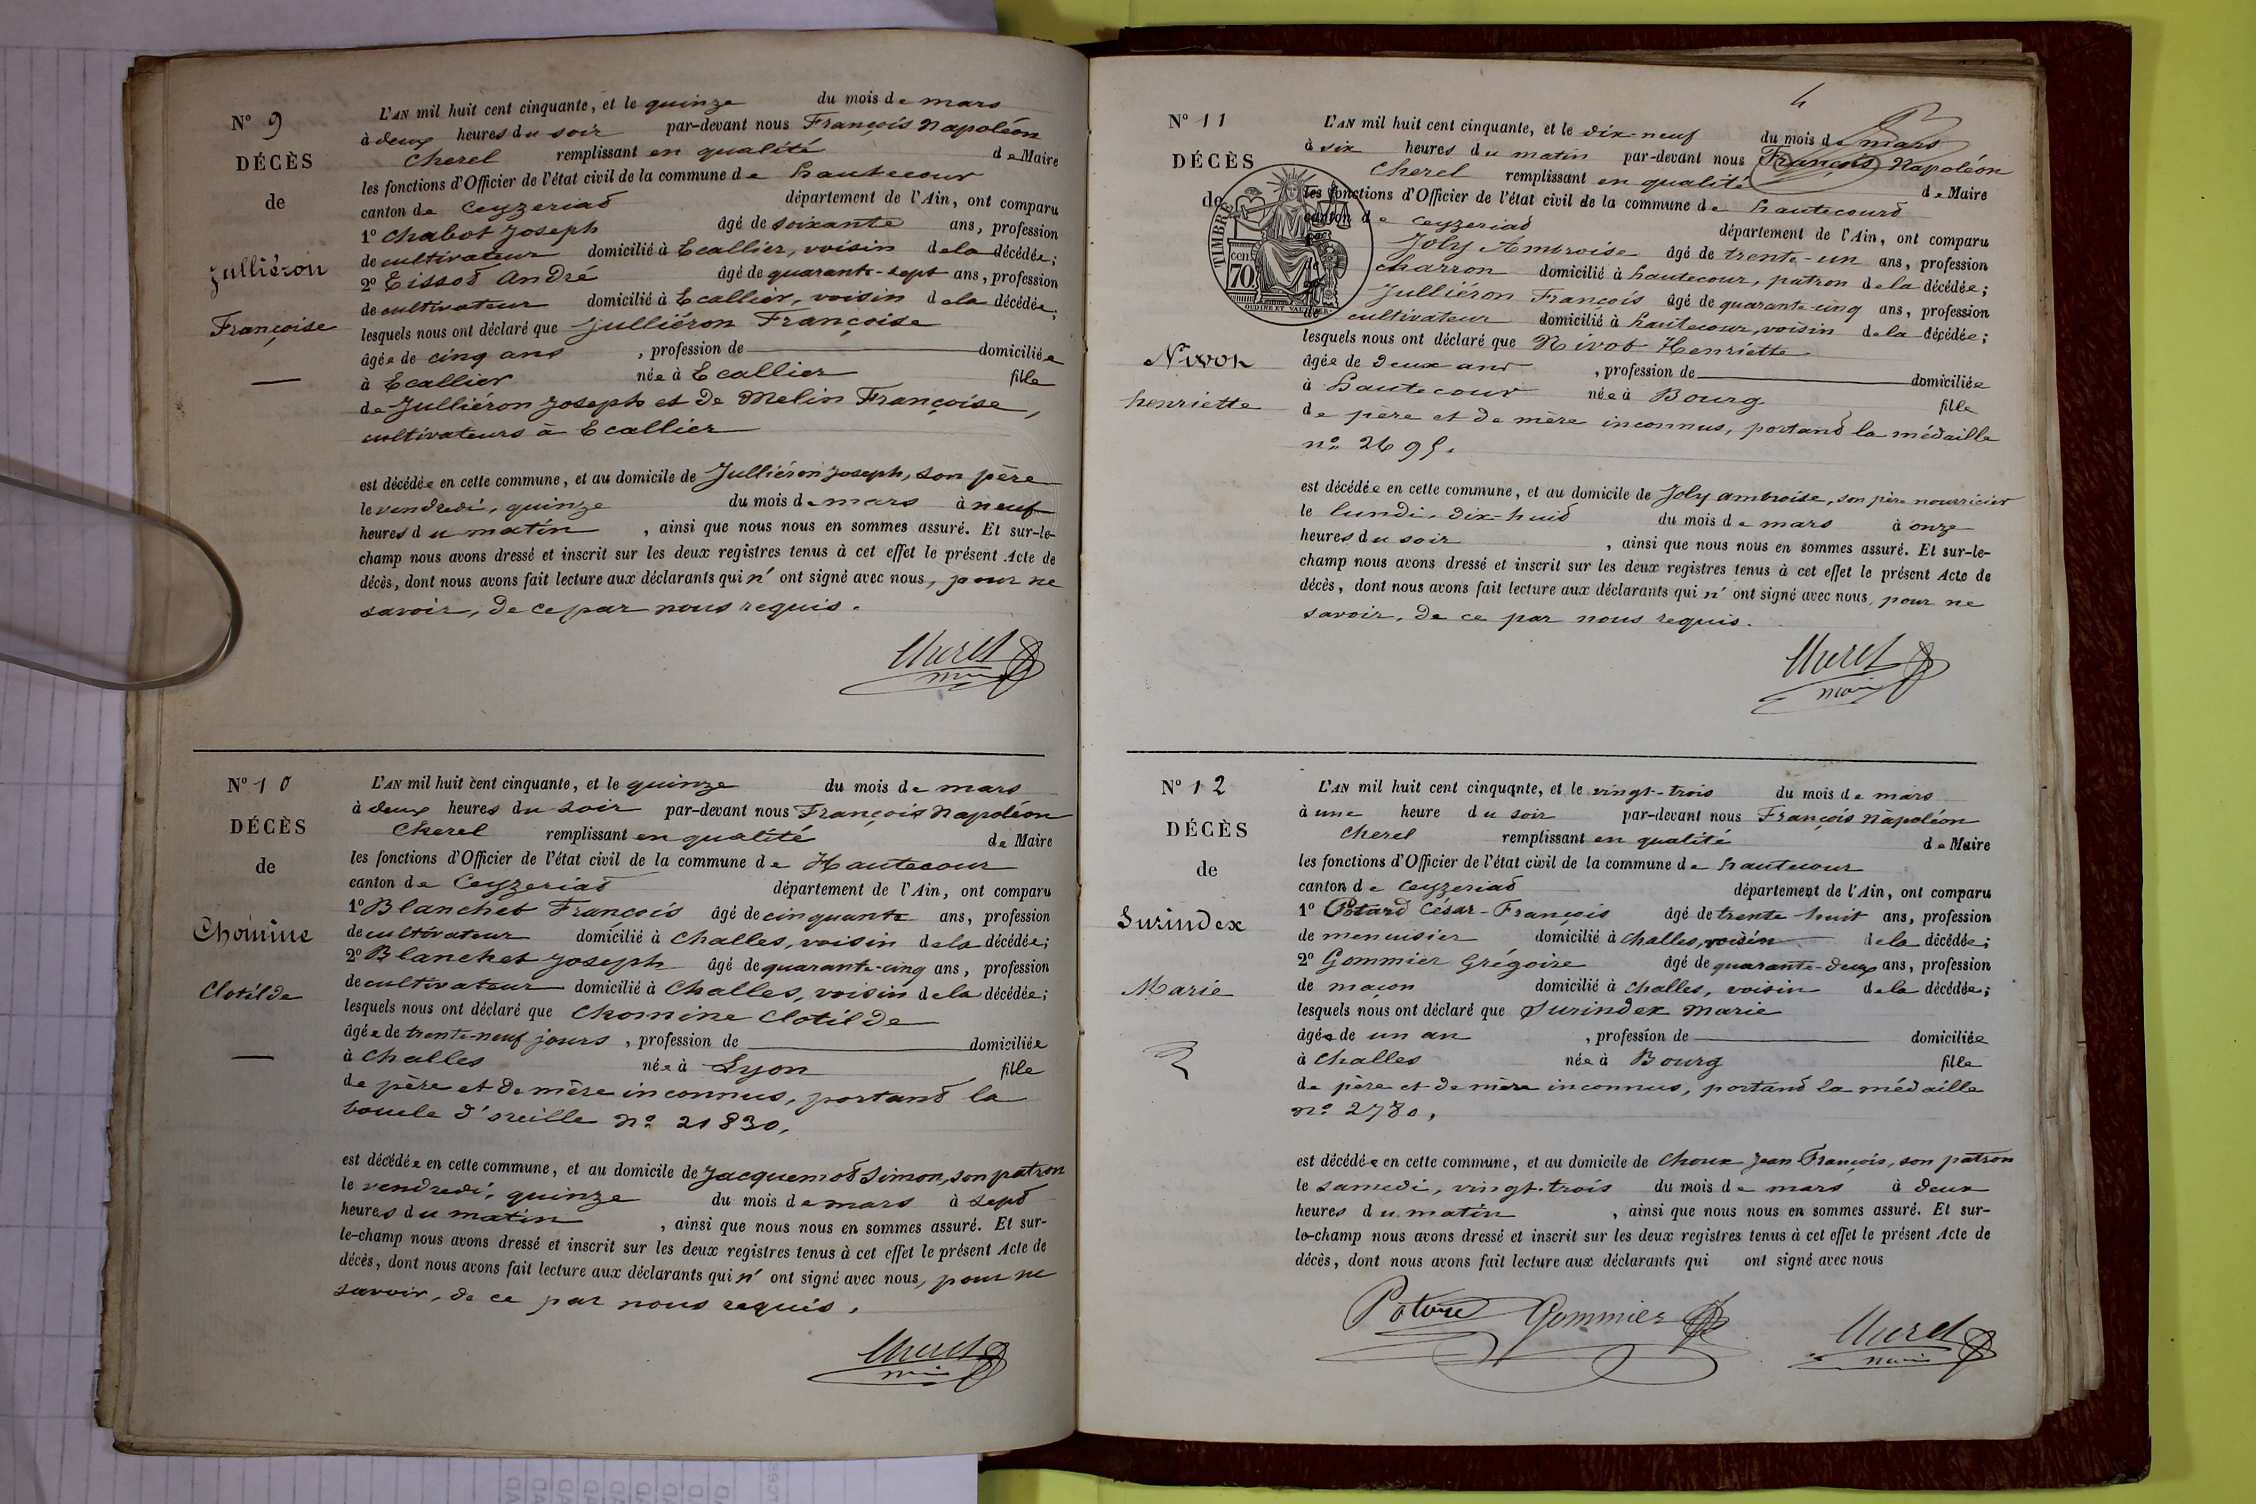 N° 9
DÉCÈS
de
Julliéron
Françoise
L'AN mil huit cent cinquante, et le quinze du mois de mars
à deux heures du soir par-devant nous François Napoléon
Cherel remplissant en qualité de Maire
les fonctions d'Officier de l'état civil de la commune de hautecour
canton de Ceyzeriat département de l'Ain, ont comparu
1° Chabot Joseph âgé de soixante ans, profession
de cultivateur domicilié à Ecallier, voisin de la décédée;
2° Eissod André âgé de quarante-sept ans, profession
de cultivateur domicilié à Ecallier, voisin de la décédée;
lesquels nous ont déclaré que Julliéron Françoise
âgée de cinq ans , profession de domiciliée
à Ecallier née à Ecallier fille
de Julliéron Joseph et de Melin Françoise,
cultivateurs à Ecallier
est décédée en cette commune, et au domicile de Julliéron Joseph, son père
le vendredi, quinze du mois de mars à neuf
heures du matin , ainsi que nous nous en sommes assuré. Et sur-le-
champ nous avons dressé et inscrit sur les deux registres tenus à cet effet le présent Acte de
décès, dont nous avons fait lecture aux déclarants qui n' ont signé avec nous, pour ne
savoir, de ce par nous requis.
Cherel
maire
N° 10
DÉCÈS
de
Chomine
Clotilde
L'AN mil huit cent cinquante, et le quinze du mois de mars
à deux heures du soir par-devant nous François Napoléon
Cherel remplissant en qualité de Maire
les fonctions d'Officier de l'état civil de la commune de Hautecour
canton de Ceyzeriat département de l'Ain, ont comparu
1° Blanchet François âgé de cinquante ans, profession
de cultivateur domicilié à Challes, voisin de la décédée;
2° Blanchet Joseph âgé de quarante-cinq ans, profession
de cultivateur domicilié à Challes, voisin de la décédée;
lesquels nous ont déclaré que Chomine Clotilde
âgée de trente-neuf jours , profession de domiciliée
à Challes née à Lyon fille
de père et de mère inconnus, portant la
boucle d'oreille n° 21830,
est décédée en cette commune, et au domicile de Jacquemod Simon, son patron
le vendredi, quinze du mois de mars à sept
heures du matin , ainsi que nous nous en sommes assuré. Et sur-
le-champ nous avons dressé et inscrit sur les deux registres tenus à cet effet le présent Acte de
décès, dont nous avons fait lecture aux déclarants qui n' ont signé avec nous, pour ne
savoir, de ce par nous requis,
Cherel
maire
4
N° 11
DÉCÈS
de
Nivon
henriette
TIMBRE
70 cen
L'AN mil huit cent cinquante, et le dix-neuf du mois de mars
à six heures du matin par-devant nous François Napoléon
Cherel remplissant en qualité de Maire
les fonctions d'Officier de l'état civil de la commune de hautecourt
canton de Ceyzeriat département de l'Ain, ont comparu
Joly Ambroise âgé de trente-un ans, profession
de charron domicilié à hautecour, patron de la décédée;
Julliéron François âgé de quarante-cinq ans, profession
de cultivateur domicilié à hautecour, voisin de la décédée;
lesquels nous ont déclaré que Nivot Henriette
âgée de deux ans , profession de domiciliée
à hautecour née à Bourg fille
de père et de mère inconnus, portant la médaille
n° 2695.
est décédée en cette commune, et au domicile de Joly ambroise, son père nourricier
le lundi, dix-huit du mois de mars à onze
heures du soir , ainsi que nous nous en sommes assuré. Et sur-le-
champ nous avons dressé et inscrit sur les deux registres tenus à cet effet le présent Acte de
décès, dont nous avons fait lecture aux déclarants qui n' ont signé avec nous, pour ne
savoir, de ce par nous requis.
Cherel
maire
N° 12
DÉCÈS
de
Surindex
Marie
L'AN mil huit cent cinquante, et le vingt-trois du mois de mars
à une heure du soir par-devant nous François Napoléon
Cherel remplissant en qualité de Maire
les fonctions d'Officier de l'état civil de la commune de hautecour
canton de Ceyzeriat département de l'Ain, ont comparu
1° Potard César-François âgé de trente huit ans, profession
de menuisier domicilié à Challes, voisin de la décédée;
2° Gommier Grégoire âgé de quarante-deux ans, profession
de maçon domicilié à Challes, voisin de la décédée;
lesquels nous ont déclaré que Surindex Marie
âgée de un an , profession de domiciliée
à Challes née à Bourg fille
de père et de mère inconnus, portant la médaille
n° 2780,
est décédée en cette commune, et au domicile de Choux Jean François, son patron
le samedi, vingt-trois du mois de mars à deux
heures du matin , ainsi que nous nous en sommes assuré. Et sur-
le-champ nous avons dressé et inscrit sur les deux registres tenus à cet effet le présent Acte de
décès, dont nous avons fait lecture aux déclarants qui ont signé avec nous
Gommier
Cherel
maire